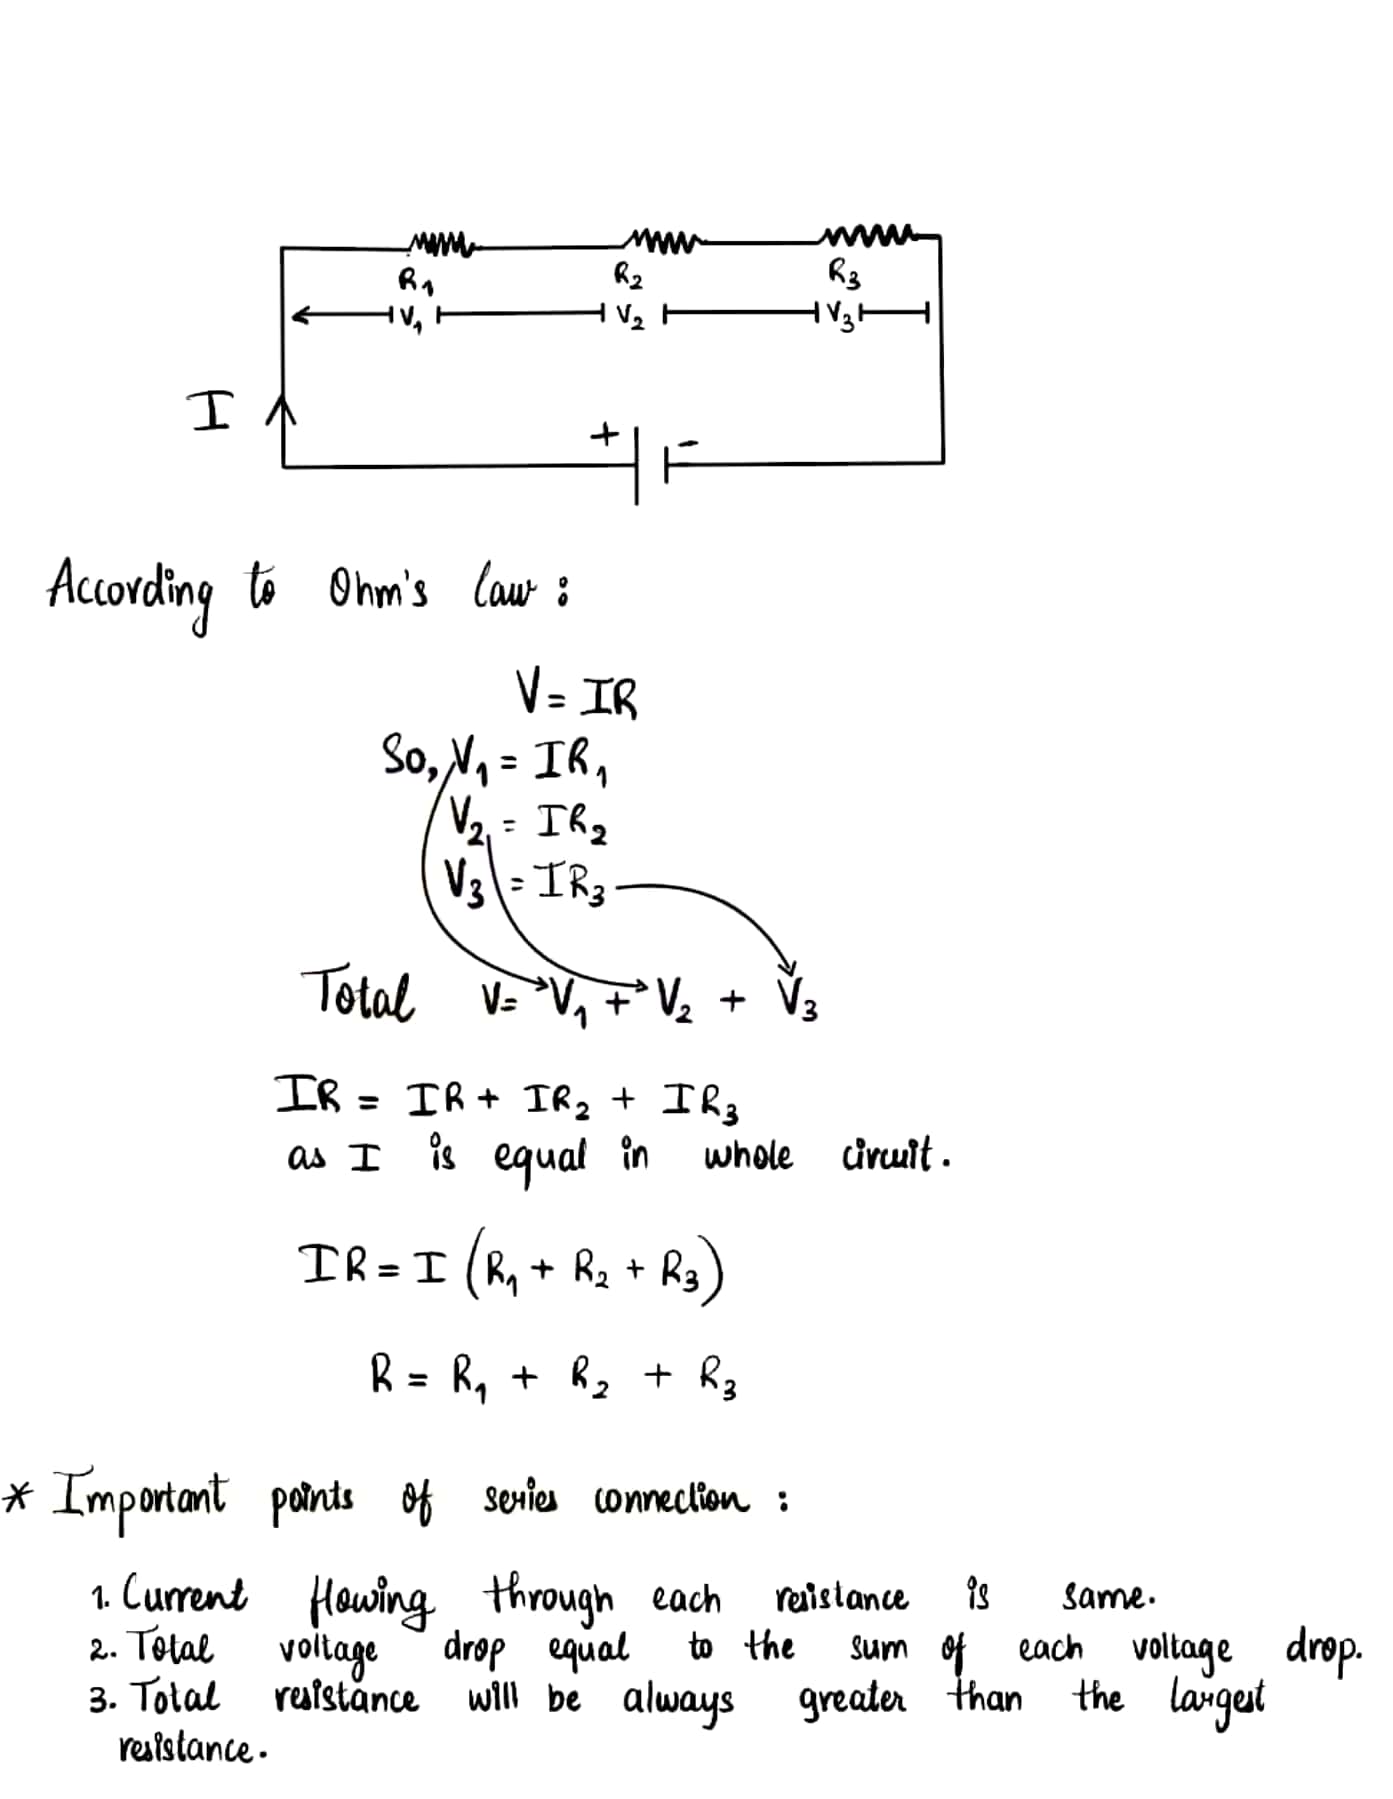 R₁ R₂ R₃
V₁ V₂ V₃
I
+ -
According to Ohm's law :
V = IR
So, V₁ = IR₁
V₂ = IR₂
V₃ = IR₃
Total V = V₁ + V₂ + V₃
IR = IR + IR₂ + IR₃
as I is equal in whole circuit.
IR = I (R₁ + R₂ + R₃)
R = R₁ + R₂ + R₃
* Important points of series connection :
1. Current flowing through each resistance is same.
2. Total voltage drop equal to the sum of each voltage drop.
3. Total resistance will be always greater than the largest
resistance.